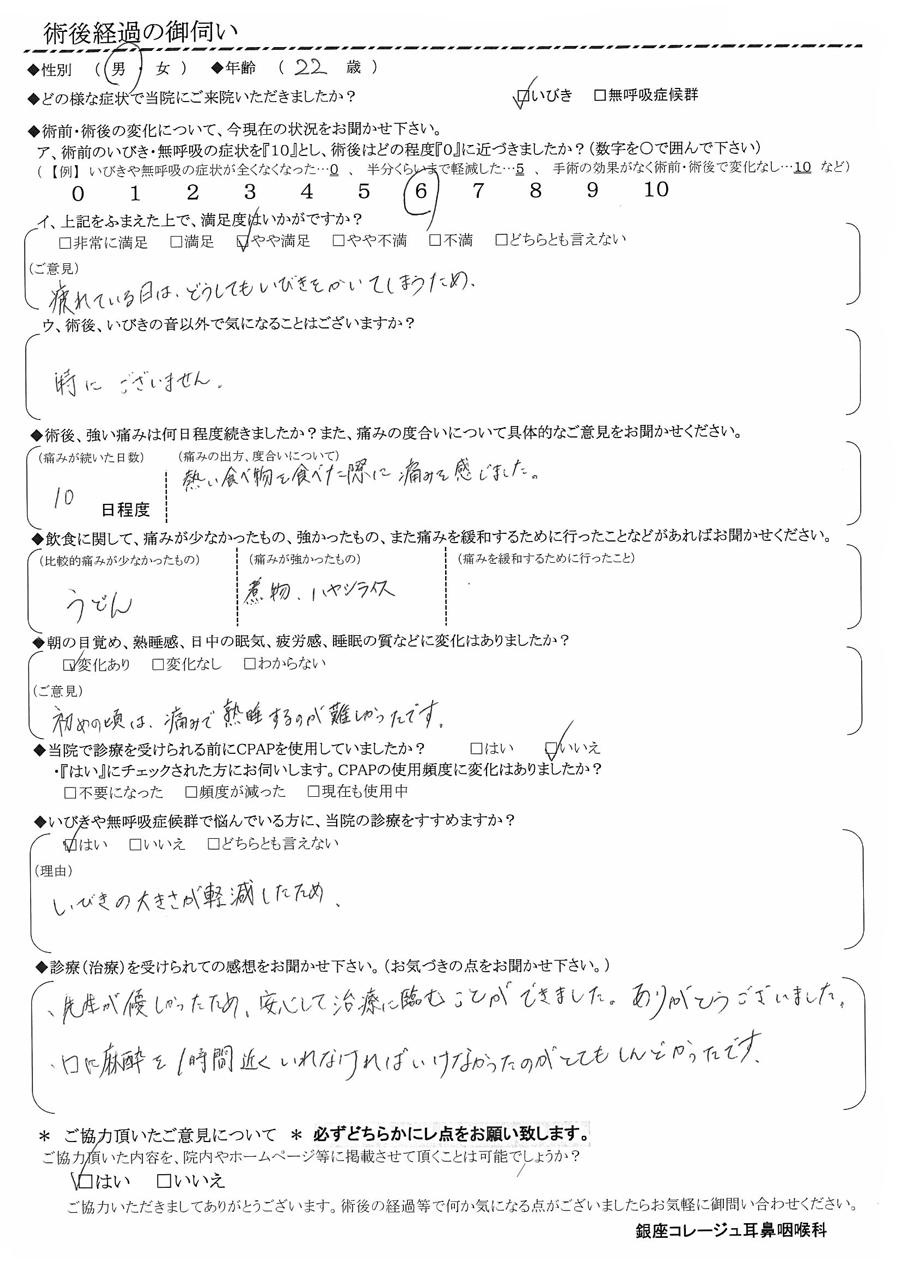 術後経過の御伺い
◆性別　（ 男・女 ）　◆年齢　（ 22 歳 ）
◆どの様な症状で当院にご来院いただきましたか？　☑いびき　□無呼吸症候群
◆術前・術後の変化について、今現在の状況をお聞かせ下さい。
ア、術前のいびき・無呼吸の症状を『10』とし、術後はどの程度『0』に近づきましたか？（数字を○で囲んで下さい）
（【例】いびきや無呼吸の症状が全くなくなった…0 、 半分くらいまで軽減した…5 、 手術の効果がなく術前・術後で変化なし…10 など）
0 1 2 3 4 5 6 7 8 9 10
イ、上記をふまえた上で、満足度はいかがですか？
□非常に満足　□満足　☑やや満足　□やや不満　□不満　□どちらとも言えない
（ご意見）
疲れている日は、どうしてもいびきをかいてしまうため、
ウ、術後、いびきの音以外で気になることはございますか？
時に ございません。
◆術後、強い痛みは何日程度続きましたか？また、痛みの度合いについて具体的なご意見をお聞かせください。
（痛みが続いた日数）　（痛みの出方、度合いについて）
熱い食べ物を食べた際に痛みを感じました。
10 日程度
◆飲食に関して、痛みが少なかったもの、強かったもの、また痛みを緩和するために行ったことなどがあればお聞かせください。
（比較的痛みが少なかったもの）　（痛みが強かったもの）　（痛みを緩和するために行ったこと）
うどん　煮物、ハヤシライス
◆朝の目覚め、熟睡感、日中の眠気、疲労感、睡眠の質などに変化はありましたか？
☑変化あり　□変化なし　□わからない
（ご意見）
初めの頃は、痛みで熟睡するのが難しかったです。
◆当院で診療を受けられる前にCPAPを使用していましたか？　□はい　☑いいえ
・『はい』にチェックされた方にお伺いします。CPAPの使用頻度に変化はありましたか？
□不要になった　□頻度が減った　□現在も使用中
◆いびきや無呼吸症候群で悩んでいる方に、当院の診療をすすめますか？
☑はい　□いいえ　□どちらとも言えない
（理由）
いびきの大きさが軽減したため、
◆診療（治療）を受けられての感想をお聞かせ下さい。（お気づきの点をお聞かせ下さい。）
、先生が優しかったため、安心して治療に臨むことができました。ありがとうございました。
、口に麻酔を1時間近くいれなければいけなかったのがとてもしんどかったです、
＊ ご協力頂いたご意見について ＊ 必ずどちらかにレ点をお願い致します。
ご協力頂いた内容を、院内やホームページ等に掲載させて頂くことは可能でしょうか？
☑はい　□いいえ
ご協力いただきましてありがとうございます。術後の経過等で何か気になる点がございましたらお気軽に御問い合わせください。
銀座コレージュ耳鼻咽喉科